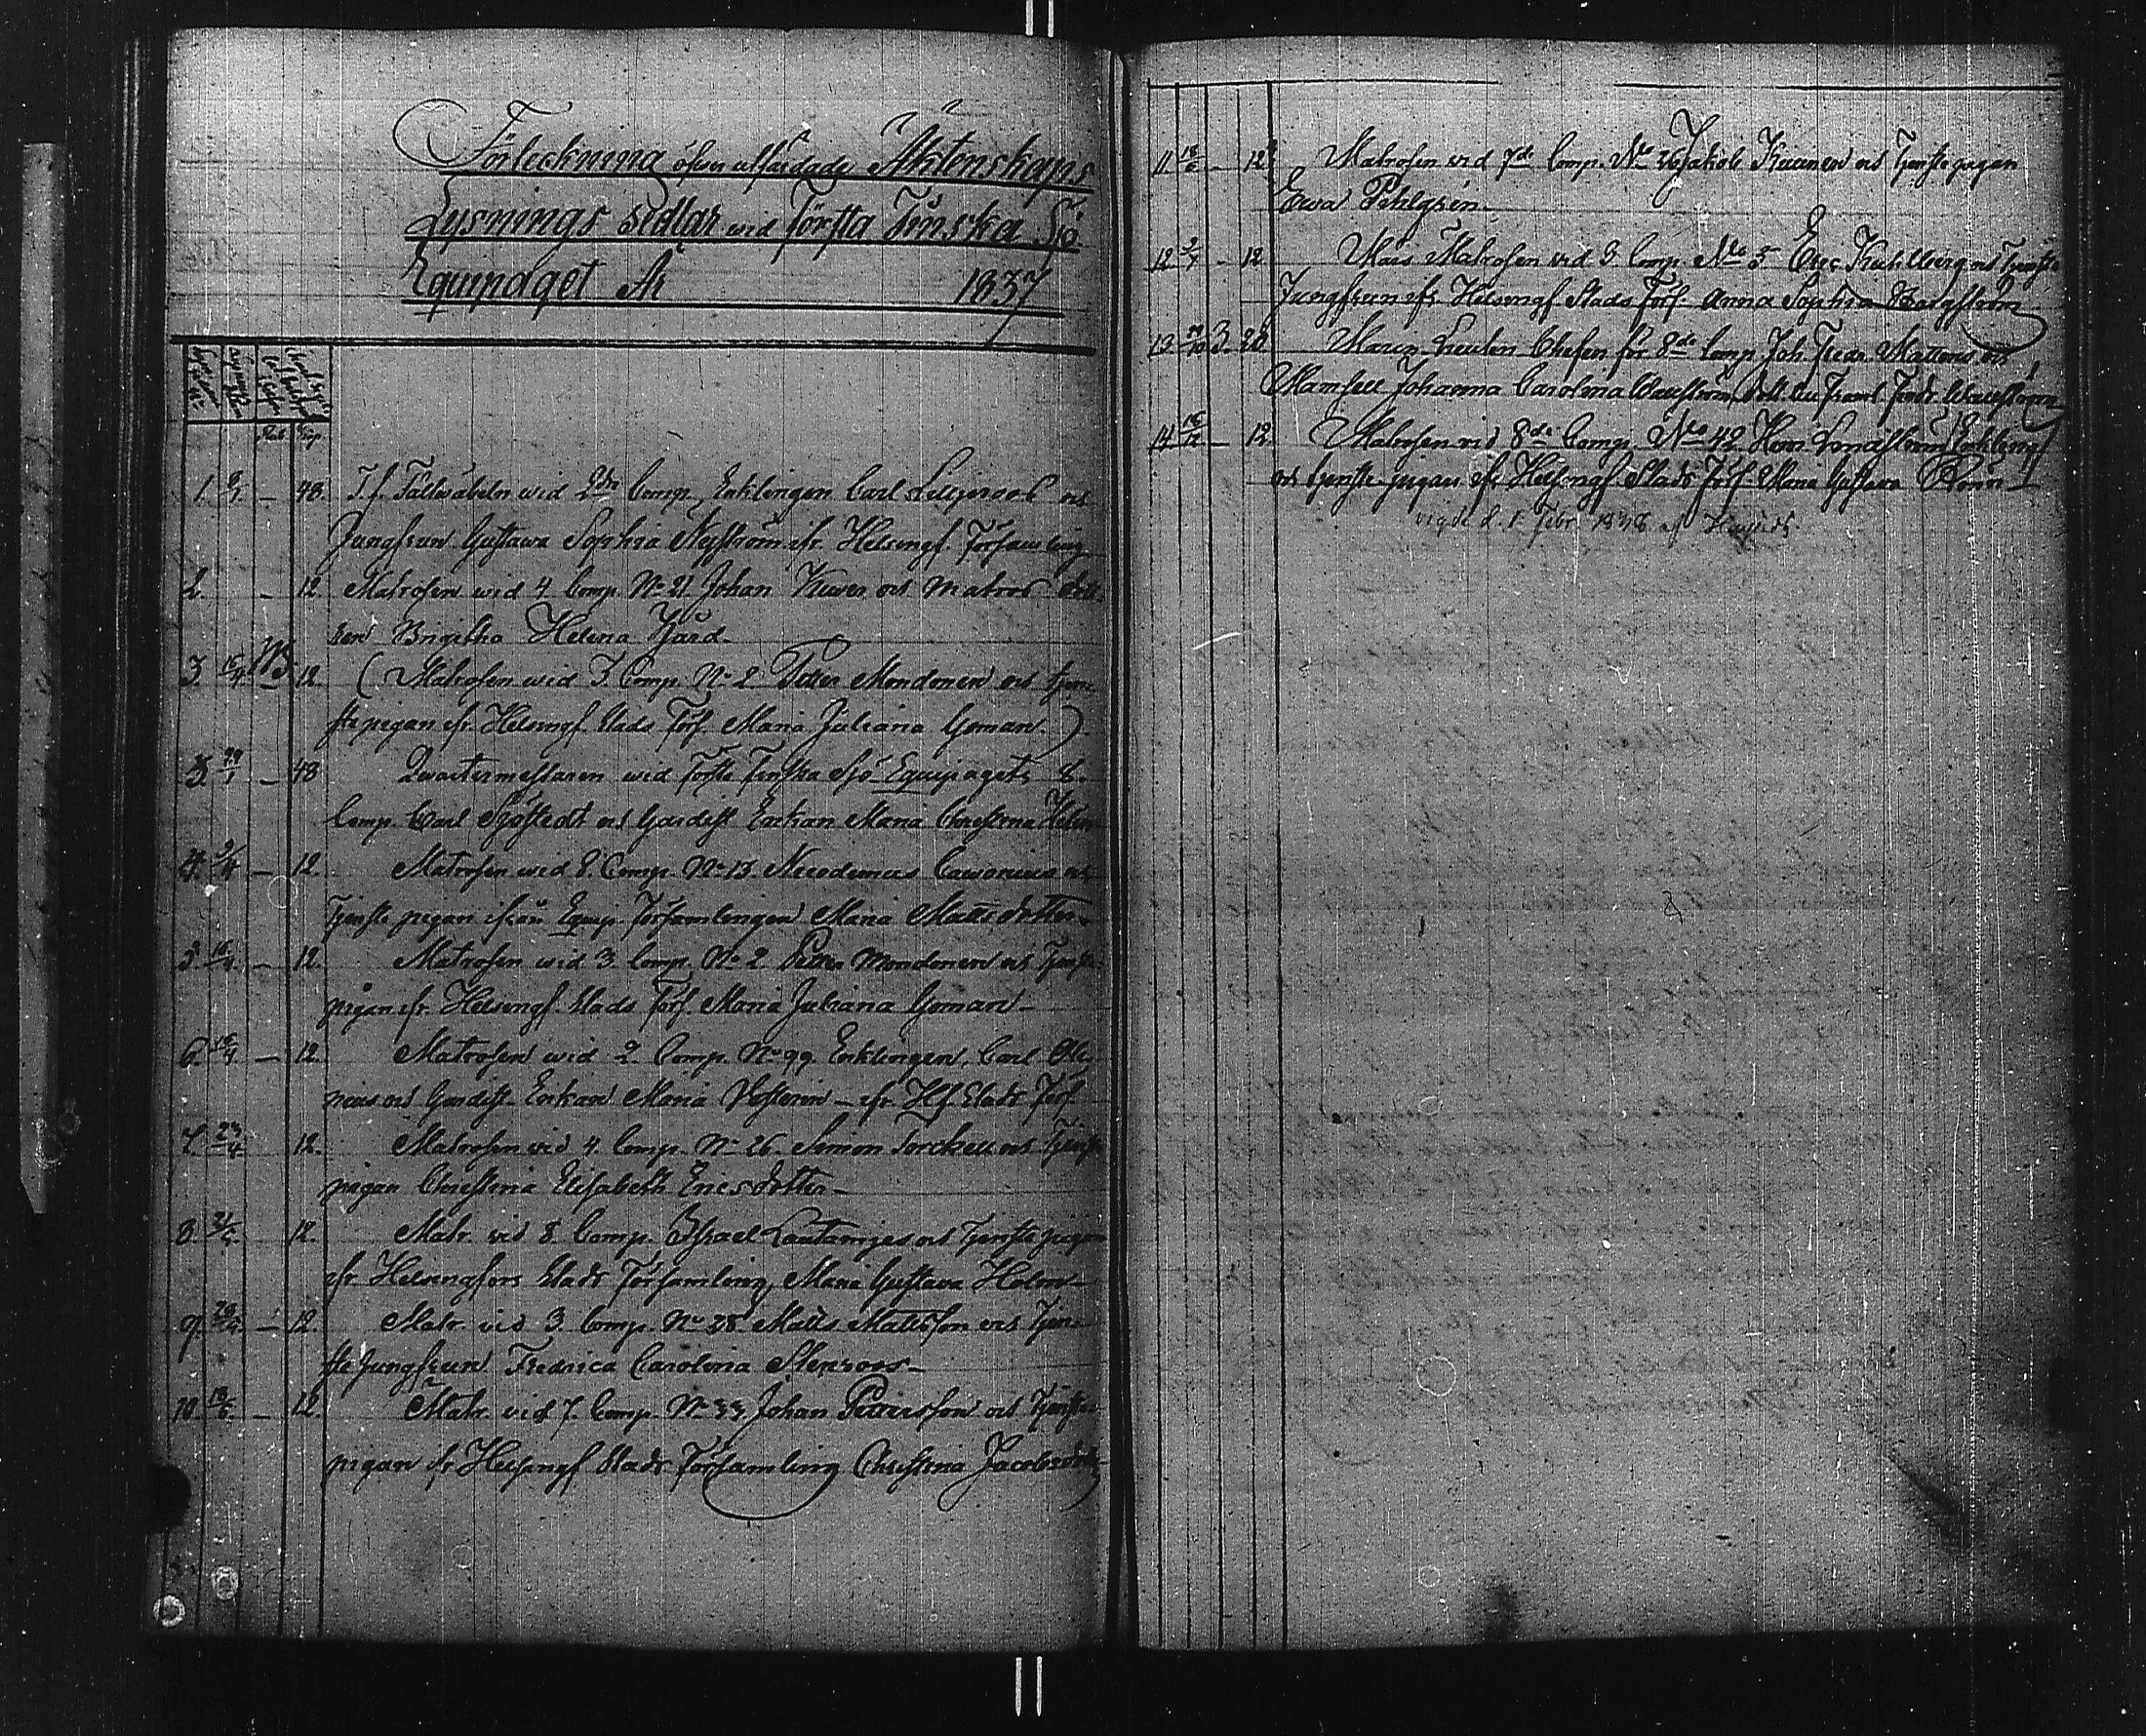 Förteckning öfver utfärdade Äktenskaps
Lysnings sedlar wid Förstta Finska Sjö
Equipaget År 1837
Rub. Kop.
1. 8/1. – 48. T.f. Fältwäbeln wid 2dra Comp. Enklingen Carl Liljeroos och
Jungfrun Gustawa Sophia Nyström ifr. Helsingf. Församling
2. – 12. Matrosen wid 4 Comp. No 21 Johan Kuwer och Matros dott-
ren Brigitha Helena Gård.
3. 15/4. NB 12. (Matrosen wid 3. Comp. No 2 Petter Mondonen och tjen-
ste pigan ifr. Helsingf. Stads Förs. Maria Juliana Goman.)
3. 29/1 – 48 Quartermestaren wid Förste Finska Sjö-Equipagets 8.
Comp. Carl Sjöstedt och Gardist Enkan Maria Christina
4. 9/4 – 12. Matrosen wid 8. Comp. No 13. Nicodemus Cawonius och
Tjenste pigan ifrån Equip. Församlingen Maria Mattsdotter.
5. 16/4. – 12. Matrosen wid 3. Comp. No 2 Petter Mondonen och Tjenste
pigan ifr. Helsingf. Stads Förs. Maria Juliana Goman –
6. 16/4 – 12. Matrosen wid 2. Comp. No 99. Enklingen, Carl
och Gardist Enkan Maria – ifr. Hf. Stads Förs.
7. 23/4. 12. Matrosen wid 4. Comp. No 26. Simon Torckell och Tjenste
pigan Christina Elisabeth Ericsdotter –
8. 12. Matr. wid 8 Comp. Israel och Tjenste pigan
ifr. Helsingfors Stads Församling, Maria Gustava Holm –
9. – 12. Matr. wid 3. Comp. No 28. Matts Mattsson och Tjen-
ste Jungfrun Fredrica Carolina Stenroos –
10. 18/6. – 12. Matr. wid 7. Comp. No 33. Johan Pettersson och Tjenste
pigan ifr Helsingf Stads Församling Christina Jacobsdotter
11. 18/6 – 12. Matrosen wid 7de Comp. No 26 Jakob Kuuinen och Tjenste pigan
Ewa Pehlgrén.
12 – 12 Mars Matrosen wid 8 Comp. No 5. Eric Kuhlberg och Tjenste
Jungfrun ifr. Helsingf Stads Förs. Anna Sophia Bergström
13. 29/10 3. 20. Marin Lieuten Chefen för 8de Comp. Joh. Fredr. och
Mamsell Johanna Carolina
14 16/12 – 12. Matrosen wid 8de Comp. No 42. Lonnström Enkling
och tjenste pigan ifr Helsingf. Stads Förs. Maria Gustava
vigde d. 1 Febr. 1838 af